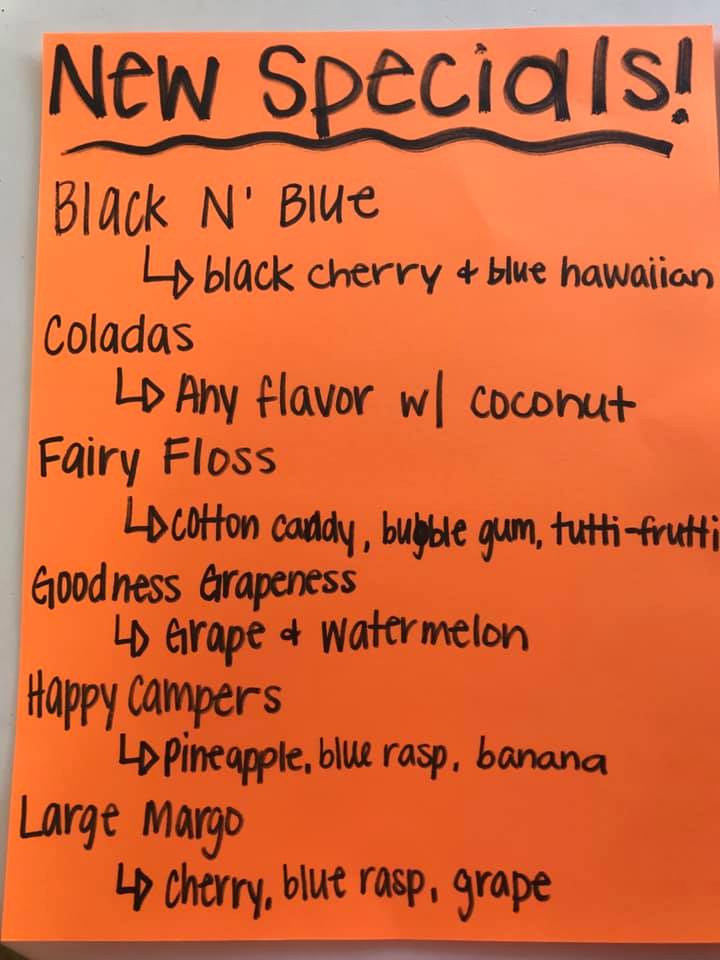 New Specials!
Black N' Blue
↳ black cherry & blue hawaiian
Coladas
↳ Any flavor w/ coconut
Fairy Floss
↳ cotton candy, bubble gum, tutti-frutti
Goodness Grapeness
↳ Grape & watermelon
Happy Campers
↳ Pineapple, blue rasp, banana
Large Margo
↳ cherry, blue rasp, grape